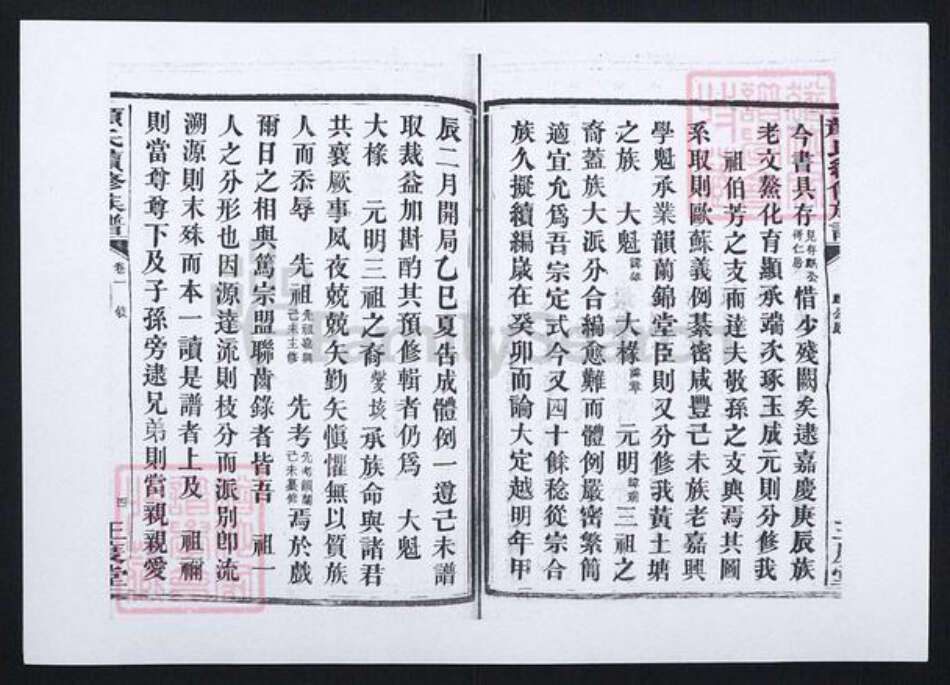 今書具存惜少殘闕矣逮嘉慶庚辰族
老文鰲化育顯承端次琢玉成元則分修我
祖伯芳之支而達夫敬孫之支與焉其圖
系取則歐蘇義例綦密咸豐己未族老嘉興
學魁承業韻蘭錦堂臣則又分修我黃土塘
之族 大魁 大椽 元明三祖之
裔蓋族大派分合編愈難而體例嚴密繁簡
適宜允爲吾宗定式今又四十餘稔從宗合
族久擬續編歲在癸卯而論大定越明年甲
辰二月開局乙巳夏告成體例一遵己未譜
取裁益加斟酌其預修輯者仍爲 大魁
大椽 元明三祖之裔 承族命與諸君
共襄厥事夙夜兢兢矢勤矢慎懼無以質族
人而忝辱 先祖 己未主修 先考 己未纂修 焉於戲
爾日之相與篤宗盟聯齒錄者皆吾 祖一
人之分形也因源達流則枝分而派別卽流
溯源則末殊而本一讀是譜者上及 祖禰
則當尊尊下及子孫旁逮兄弟則當親親愛
顏氏續修族譜 卷一 敘 四 三度堂
FamilySearch